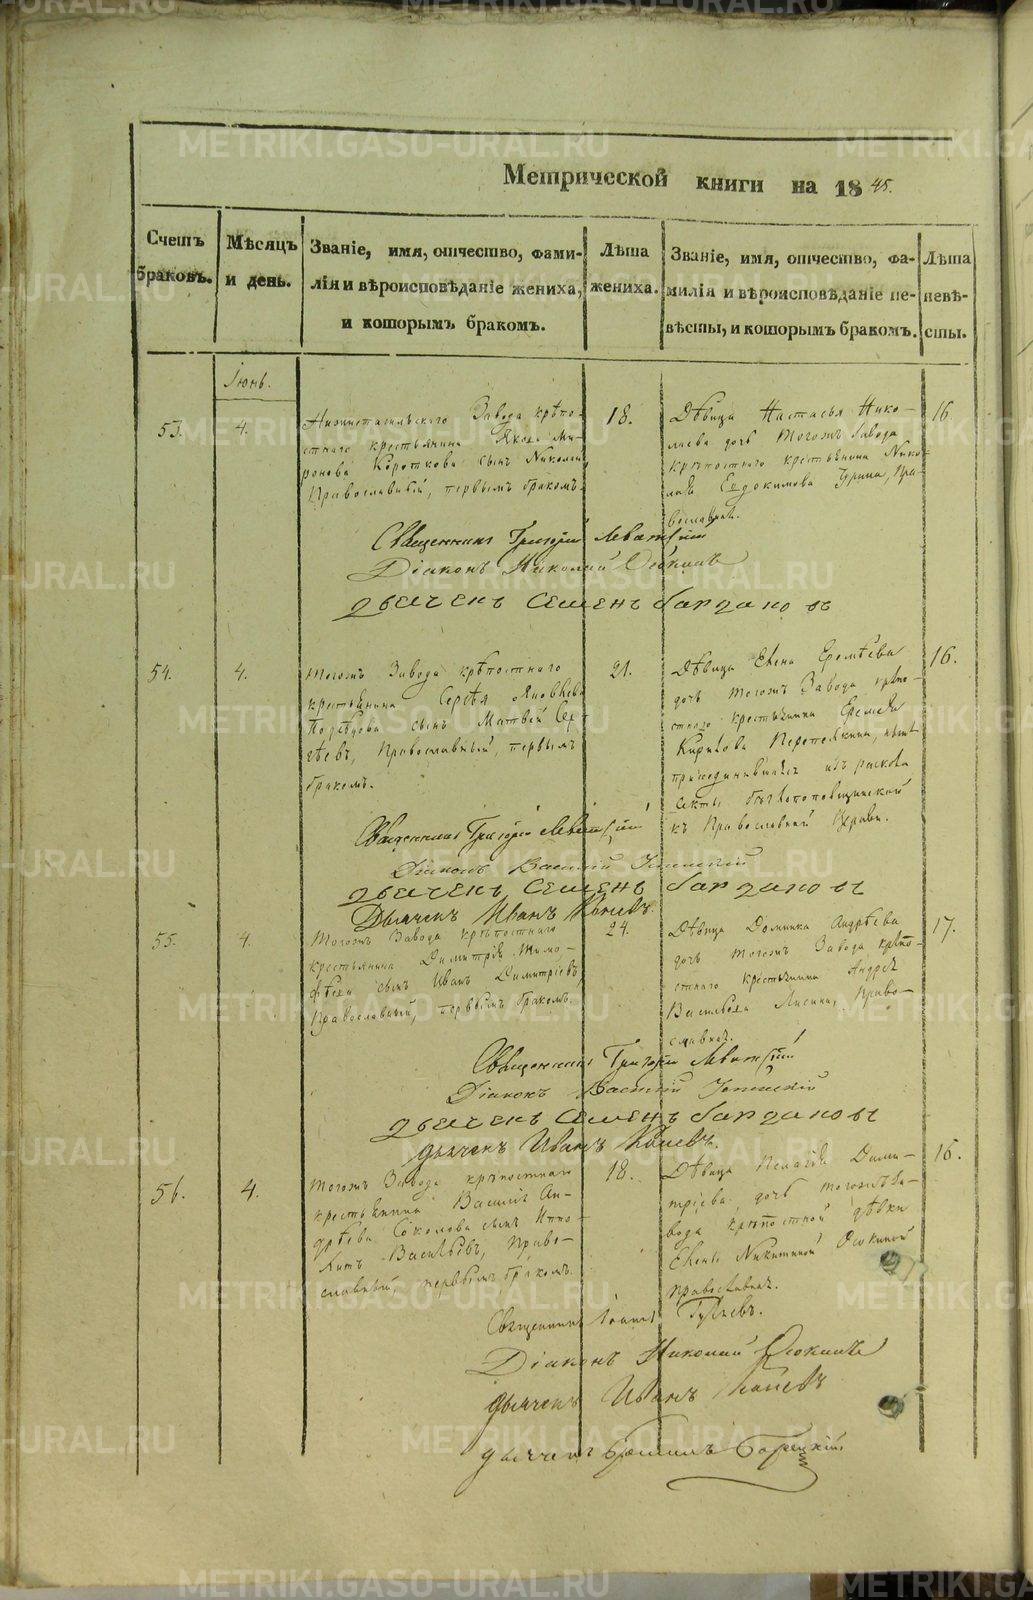 Метрической книги на 1845.
Счетъ браковъ.
Мѣсяцъ и день.
Званіе, имя, отчество, фами-
лія и вѣроисповѣданіе жениха,
и которымъ бракомъ.
Лѣта
жениха.
Званіе, имя, отчество, фа-
милія и вѣроисповѣданіе не-
вѣсты, и которымъ бракомъ.
Лѣта
невѣ-
сты.
Іюнь.
53.
4.
Нижнетагильскаго Завода крѣпо-
стнаго крестьянина Якова Ми-
ронова Короткова сынъ Николай
Православный, первымъ бракомъ.
18.
Дѣвица Настасья Нико-
лаева дочь тогожъ Завода
крѣпостнаго крестьянина Нико-
лая Евдокимова Пра-
вославная.
16.
Священникъ Григорій Левитскій
Діаконъ Николай
Дьячекъ Семенъ
54.
4.
Тогожъ Завода крѣпостнаго
крестьянина Сергѣя Яковлева
сынъ Матвей Сер-
гѣевъ, Православный, первымъ
бракомъ.
21.
Дѣвица Елена Еремѣева
дочь тогожъ Завода крѣпо-
стнаго крестьянина Еремея
Кирилова
присоединившаяся изъ раскола
секты бѣглопоповщинской
къ Православной Церкви.
16.
Священникъ Григорій Левитскій
Діаконъ Василій
Дьячекъ Семенъ
Дьячекъ Иванъ
55.
4.
Тогожъ Завода крѣпостнаго
крестьянина Димитрія Тимо-
фѣева сынъ Иванъ Димитріевъ,
Православный, первымъ бракомъ.
24.
Дѣвица Домника Андрѣева
дочь тогожъ Завода крѣпо-
стнаго крестьянина Андрея
Васильева Лисина, Право-
славная.
17.
Священникъ Григорій Левитскій
Діаконъ Василій
Дьячекъ Семенъ
Дьячекъ Иванъ
56.
4.
Тогожъ Завода крѣпостнаго
крестьянина Василія Ан-
дрѣева Соколова сынъ Иппо-
литъ Васильевъ, Право-
славный, первымъ бракомъ.
18.
Дѣвица Пелагія Дими-
тріева, дочь тогожъ За-
вода крѣпостной дѣвки
Елены Никитиной Осокиной
православная.
16.
Священникъ Іоаннъ
Діаконъ Николай
Дьячекъ Иванъ
Дьячекъ
METRIKI.GASO-URAL.RU